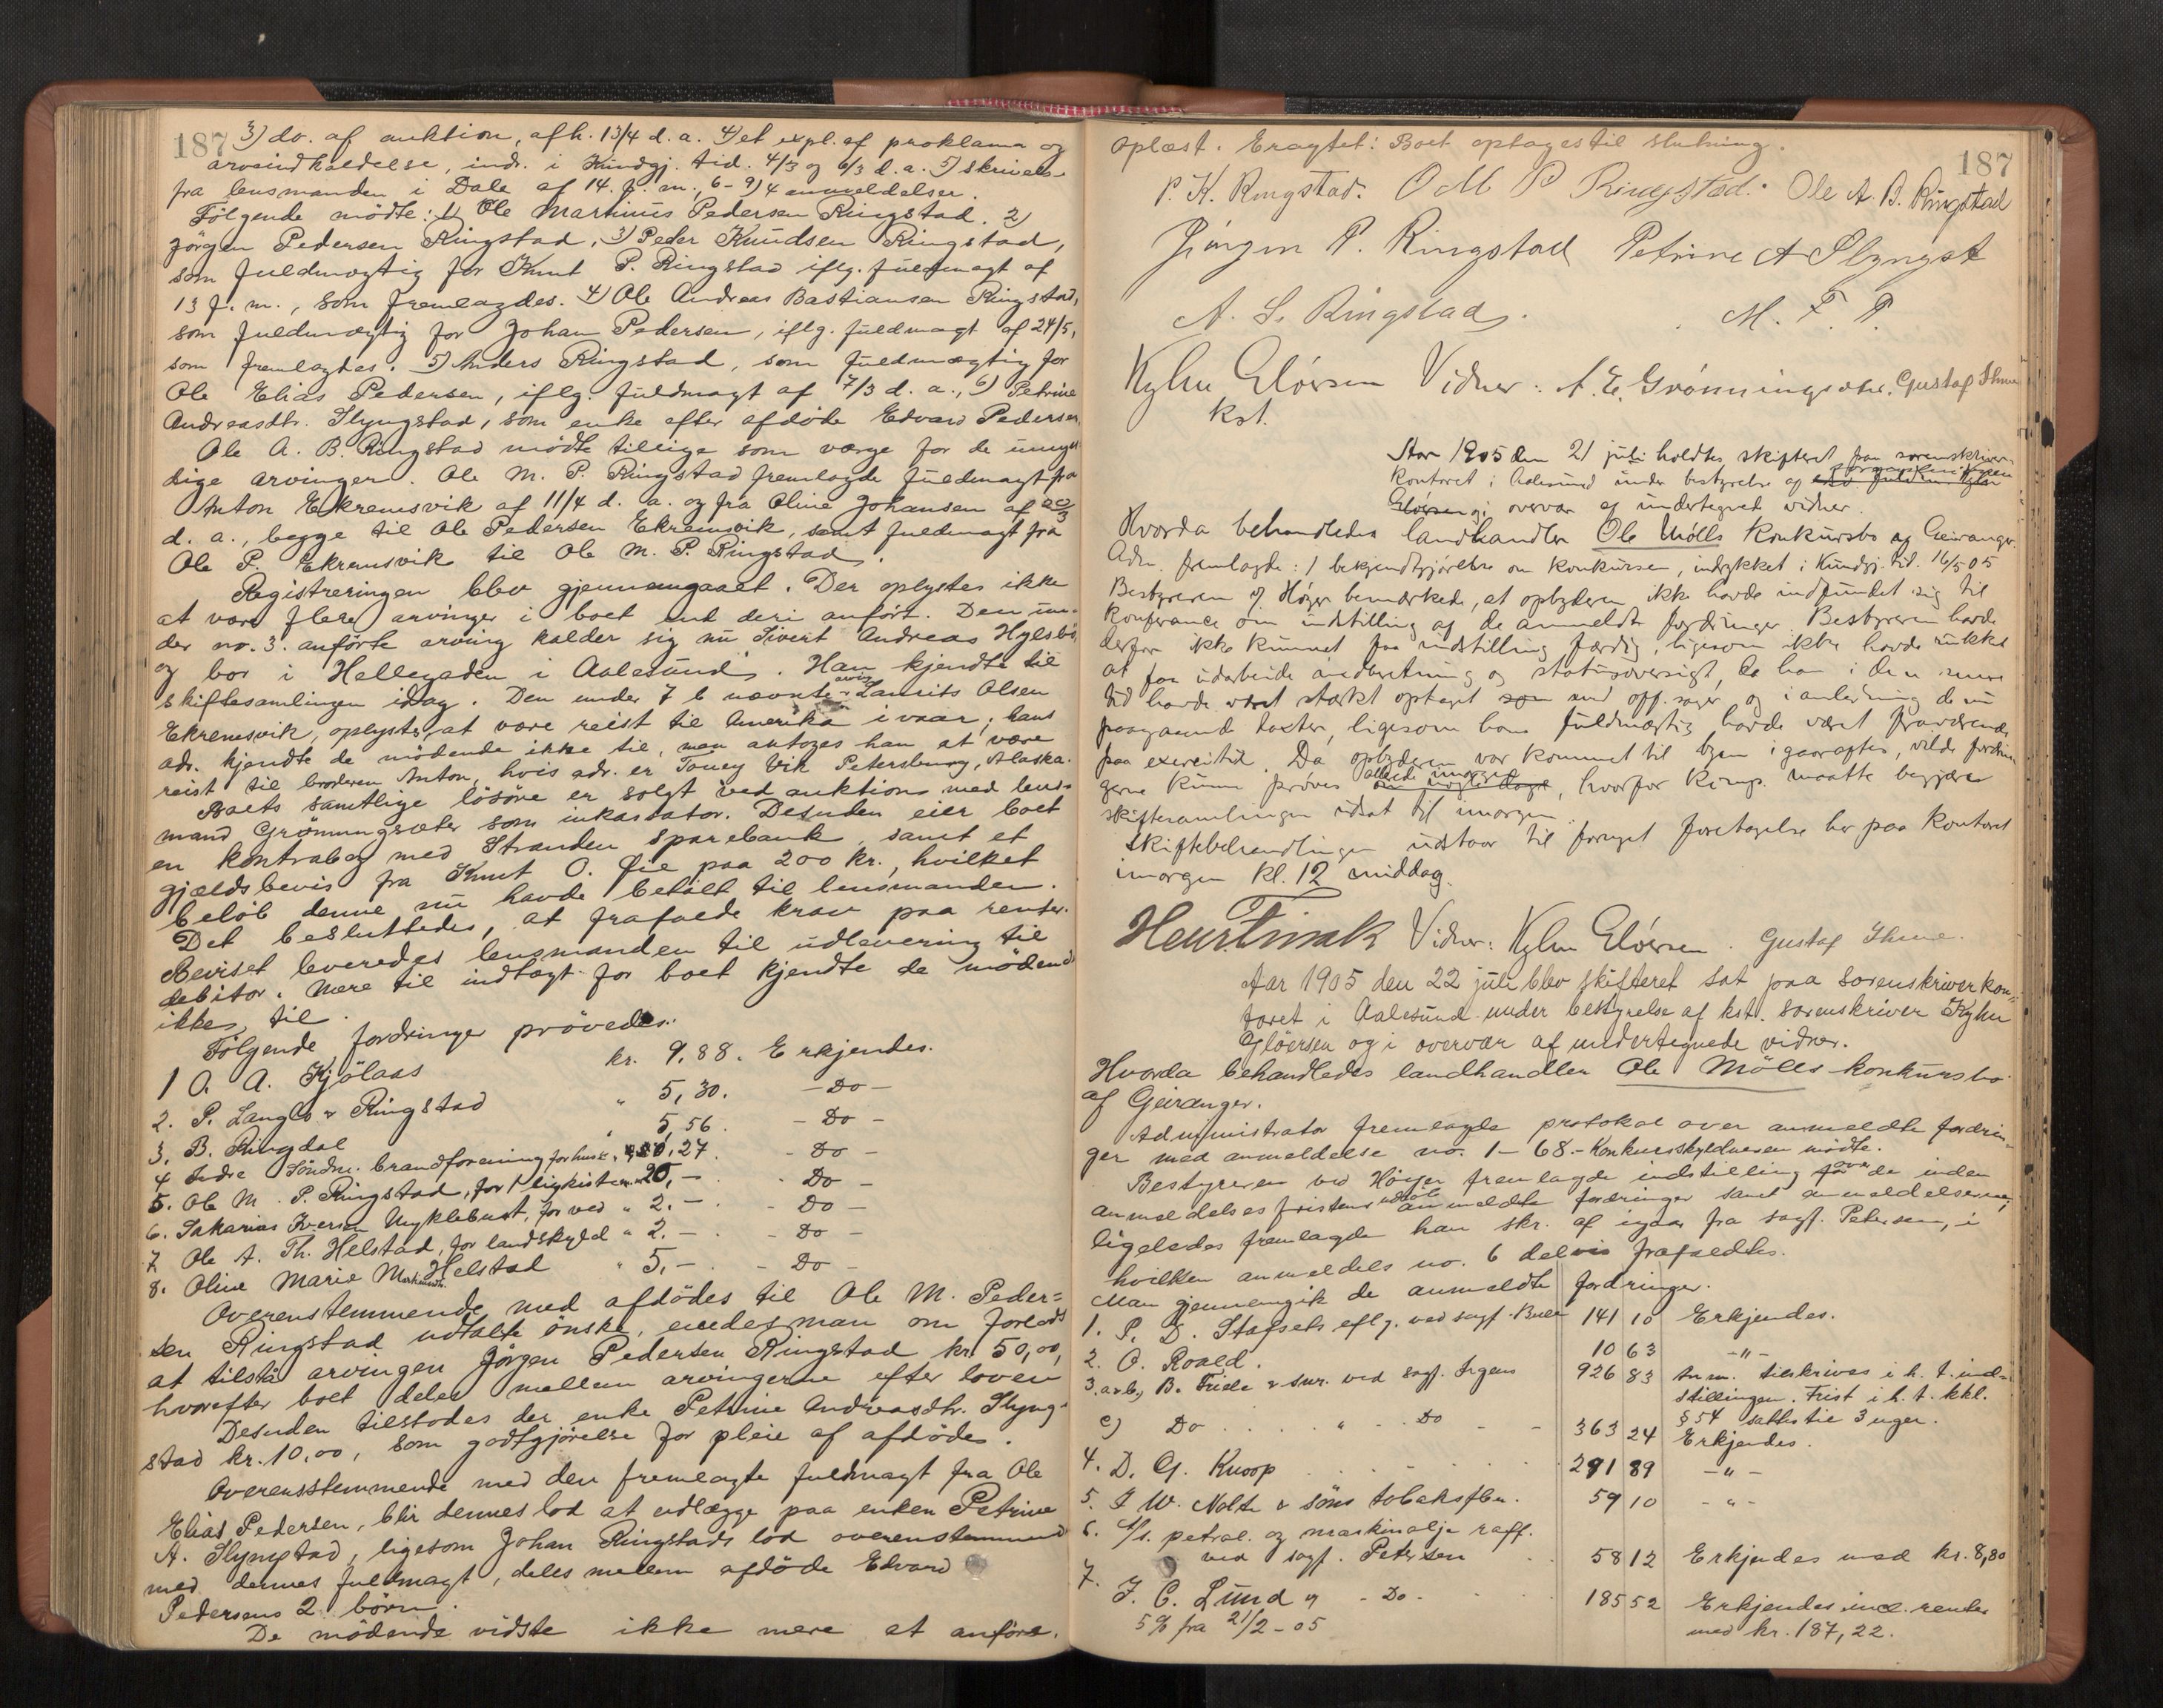 187
3) do. af auktion, afh. 13/4 d. a. 4) et expl. af proklama og
arveindkaldelse, indr. i Kundgj. tid. 4/3 og 6/3 d. a. 5) skrivelse
fra lensmanden i Dale af 14. f. m., 6-9) 4 anmeldelser.
Følgende mödte: 1) Ole Martinus Pedersen Ringstad. 2)
Jörgen Pedersen Ringstad, 3) Peder Knudsen Ringstad,
som fuldmægtig for Knut P. Ringstad iflg. fuldmagt af
13 f. m., som fremlagdes. 4) Ole Andreas Bastiansen Ringstad,
som fuldmægtig for Johan Pedersen, iflg. fuldmagt af 24/5,
som fremlagdes. 5) Anders Ringstad, som fuldmægtig for
Ole Elias Pedersen, iflg. fuldmagt af 7/3 d. a., 6) Petrine
Andreasdtr. Slyngstad, som enke efter afdöde Edvard Pedersen.
Ole A. B. Ringstad mödte tillige som værge for de umyn-
dige arvinger. Ole M. P. Ringstad fremlagde fuldmagt fra
Anton Ekremsvik af 11/4 d. a. og fra Oline Johansen af 20/3
d. a., begge til Ole Pedersen Ekremsvik, samt fuldmagt fra
Ole P. Ekremsvik til Ole M. P. Ringstad.
Registreringen blev gjennemgaaet. Der oplystes ikke
at være flere arvinger i boet end deri anfört. Den un-
der no. 3. anförte arving kalder sig nu Sivert Andreas Hylsbö
og bor i Hellegaden i Aalesund. Han kjendte til
skiftesamlingen idag. Den under 7 b nævnte arving Laurits Olsen
Ekremsvik, oplystes, at være reist til Amerika ivaar; hans
adr. kjendte de mödende ikke til, men antoges han at være
reist til broderen Anton, hvis adr. er Toney Vik Petersburg, Alaska.
Boets samtlige lösöre er solgt ved auktion med lens-
mand Grönningsæter som inkassator. Desuden eier boet
en kontrabog med Stranden sparebank, samt et
gjældsbevis fra Knut O. Øie paa 200 kr., hvilket
belöb denne nu havde betalt til lensmanden.
Det besluttedes, at frafalde krav paa renter.
Beviset leveredes lensmanden til udlevering til
debitor. Mere til indtægt for boet kjendte de mödende
ikke til.
Følgende fordringer prövedes:
1 O. A. Kjölaas kr. 9,88. Erkjendes.
2. P. Langlo Ringstad " 5,30. - Do -
3. B. Ringdal " 5,56. - Do -
4 Indre Söndm. brandforening for huse 27. - Do -
5. Ole M. P. Ringstad, for 1 ligkiste " 20,- - Do -
6. Sakarias Iversen Myklebust, for ved " 2.- - Do -
7. Ole A. Th. Helstad, for landskyld " 2.- - Do -
8. Oline Marie Markusdtr. Helstad " 5,- - Do -
Overenstemmende med afdödes til Ole M. Peder=
sen Ringstad udtalte önske, enedes man om forlods
at tilstå arvingen Jörgen Pedersen Ringstad kr. 50,00,
hvorefter boet deles mellem arvingerne efter loven
Desuden tilstodes der enke Petrine Andreasdtr. Slyng-
stad kr. 10,00, som godtgjörelse for pleie af afdöde.
Overensstemmende med den fremlagte fuldmagt fra Ole
Elias Pedersen, blir dennes lod at udlægge paa enken Petrine
A. Slyngstad, ligesom Johan Ringstads lod overenstemmend
med dennes fuldmagt, deles mellem afdöde Edvard
Pedersens 2 börn.
De mödende vidste ikke mere at anföre.
187
Oplæst. Eragtet: Boet optages til slutning.
P. K. Ringstad. O M P Ringstad. Ole A. B. Ringstad
Jörgen P. Ringstad Petrine A Slyngst
A. S. Ringstad. M. F. P.
Kyhn Gløersen Vidner: A. E. Grønningsæter. Gustaf Thue
kst.
Aar 1905 den 21 juli holdtes skifteret paa sorenskriver-
kontoret i Aalesund under bestyrelse af
Gløersen og i overvær af undertegnet vidner.
Hvorda behandledes landhandler Ole Mølls konkursbo af Geiranger.
Adm. fremlagde: 1 bekjendtgjørelse om konkursen, indrykket i Kundgj. tid. 16/5 05
Bestyreren og Høyer bemærkede, at opbyderen ikke havde indfundet sig til
konferance om indstilling af de anmeldte fordringer. Bestyreren havde
derfor ikke kunnet faa indstilling færdig, ligesom ikke havde rukket
at faa udarbeide indberetning og statusoversigt, da han i den senere
tid havde været stærkt optaget som med off. sager og i anledning de nu
paagaaende taxter, ligesom hans fuldmægtig havde været fraværende
paa exercitid. Da opbyderen var kommet til byen igaaraftes, vilde fordrin-
gerne kunne prøves allerede imorgen om nogle dage, hvorfor komp. maatte begjære
skiftesamlingen udsat til imorgen.
Skiftebehandlingen udstaar til fornyet foretagelse her paa kontoret
imorgen kl. 12 middag.
Henr Finak Vidner: Kyhn Gløersen. Gustaf Thue.
Aar 1905 den 22 juli blev skifteret sat paa Sorenskriverkon-
toret i Aalesund under bestyrelse af kst. sorenskriver Kyhn
Gløersen og i overvær af undertegnede vidner.
Hvorda behandledes landhandler Ole Mölls konkursbo
af Geiranger.
Administrator fremlagde protokol over anmeldte fordrin-
ger med anmeldelse no. 1-68.- Konkursskyldneren mödte.
Bestyreren ved Höyer fremlagde indstilling for over de inden
anmeldelsesfristens udlöb anmeldte fordringer samt anmeldelserne,
ligeledes fremlagde han skr. af igaar fra sagf. Petersen, i
hvilken anmeldels no. 6 delvis frafaldtes.
Man gjennemgik de anmeldte fordringer.
1. P. D. Stafsets eflg. ved sagf. Bull 141 10 Erkjendes.
2. O. Roald. 10 63 -"-
3. a & b) B. Friele & sön. ved sagf. Irgens 926 83 Anm. tilskrives i h. t. ind-
stillingen. Frist i h. t. kkl.
§ 54 sattes til 3 uger.
c) Do " Do 363 24 Erkjendes.
4. D. G. Knoop 291 89 -"-
5. J W. Nolte & söns tobaksfbr. 59 10 -"-
6. A/s. petrol. og maskinolje raff.
ved sagf. Petersen 58 12 Erkjendes med kr. 8,80
7. J. C. Lund " - Do - 185 52 Erkjendes incl. renter
5% fra 21/2-05 med kr. 187,22.